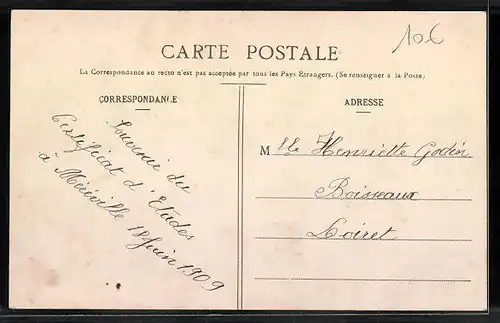 10€
CARTE POSTALE
La Correspondance au recto n'est pas acceptée par tous les Pays Etrangers. (Se renseigner à la Poste)
CORRESPONDANCE
Souvenir du
Certificat d'Etudes
à Méréville 18 Juin 1909
ADRESSE
Mlle Henriette Godin
Boisseaux
Loiret